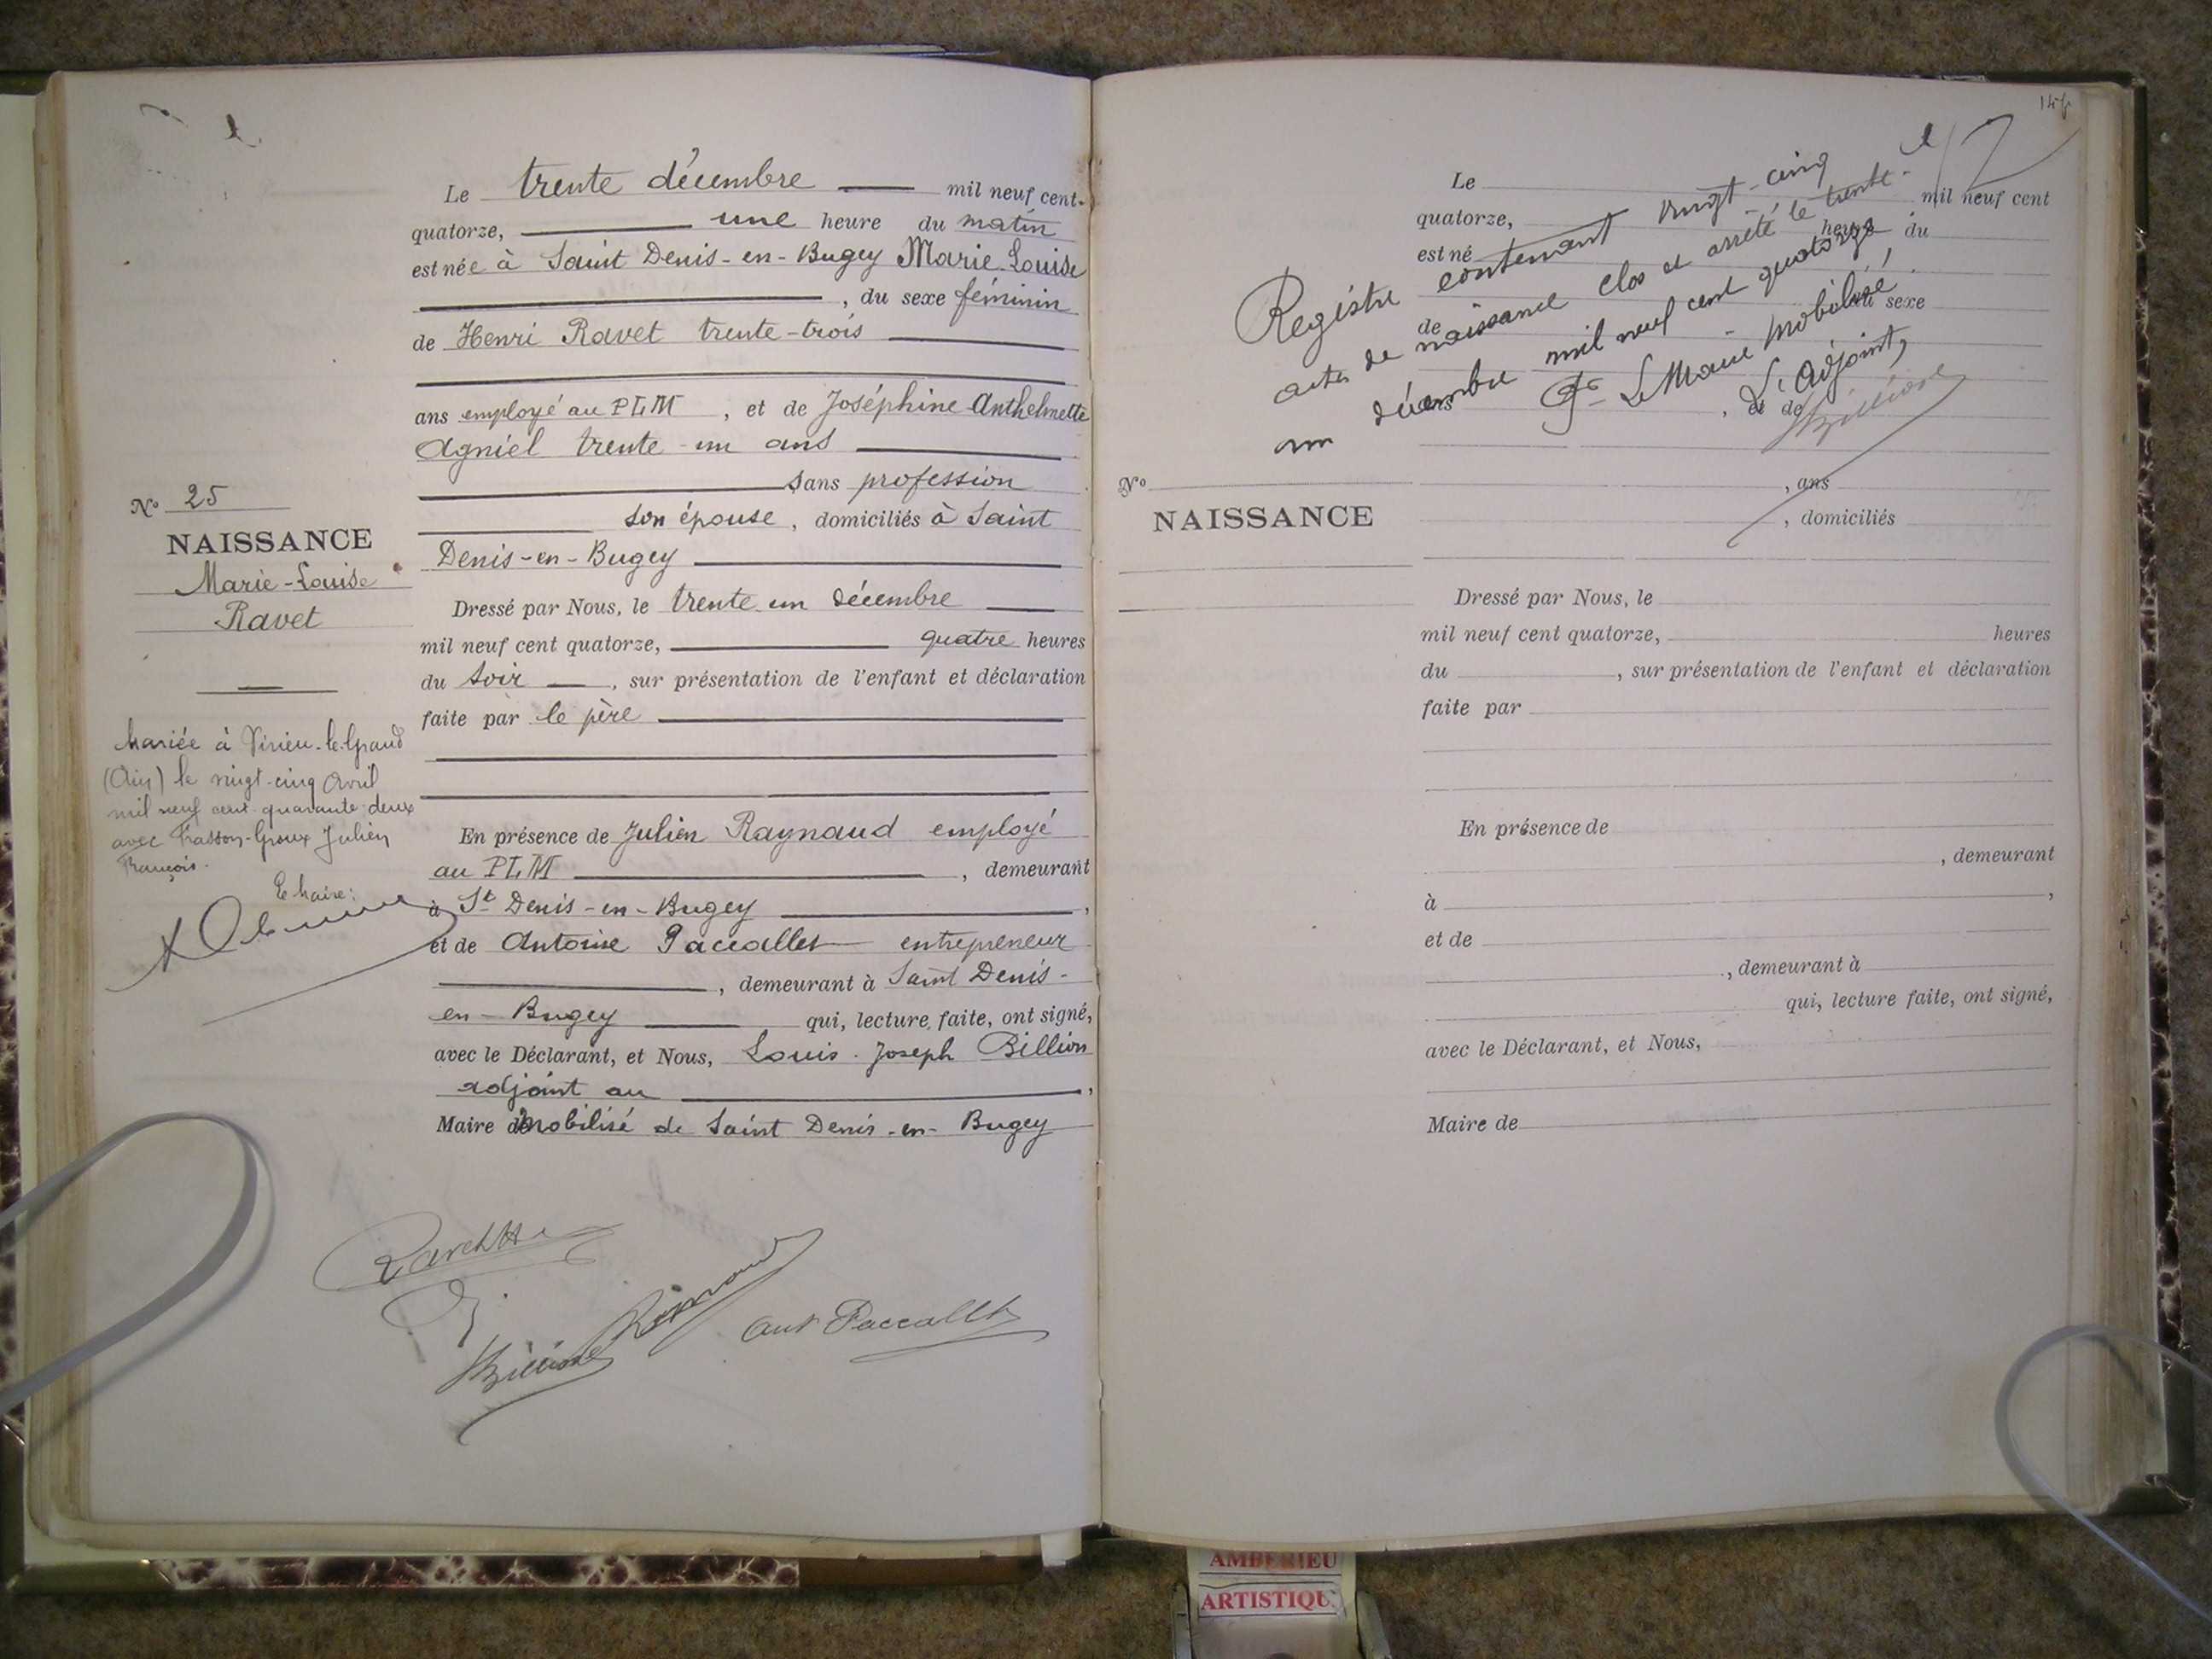 Le trente décembre mil neuf cent-
quatorze, une heure du matin
est née à Saint Denis-en-Bugey Marie-Louise
, du sexe féminin
de Henri Ravet trente-trois
ans employé au PLM , et de Joséphine Anthelmette
Agniel trente-un ans
sans profession
son épouse , domiciliés à Saint
Denis-en-Bugey
Dressé par Nous, le trente-un décembre
mil neuf cent quatorze, quatre heures
du soir , sur présentation de l'enfant et déclaration
faite par le père
En présence de Julien Raynaud employé
au PLM , demeurant
à St Denis-en-Bugey ,
et de Antoine Paccallet entrepreneur
, demeurant à Saint Denis-
en-Bugey qui, lecture faite, ont signé,
avec le Déclarant, et Nous, Louis Joseph Billion
adjoint au ,
Maire mobilisé de Saint Denis-en-Bugey
No 25
NAISSANCE
Marie-Louise
Ravet
Mariée à Virieu-le-Grand
(Ain) le vingt-cinq Avril
mil neuf cent quarante-deux
avec Julien
François.
Le Maire:
Billion
Raynaud
Ant Paccallet
Le mil neuf cent
quatorze, heure du
est né
du sexe
de
ans , et de
, ans
, domiciliés
Registre contenant vingt-cinq
actes de naissance clos et arrêté le trente-
un décembre mil neuf cent quatorze
Le Maire mobilisé,
L'Adjoint,
Billion
No
NAISSANCE
Dressé par Nous, le
mil neuf cent quatorze, heures
du , sur présentation de l'enfant et déclaration
faite par
En présence de
, demeurant
à ,
et de
, demeurant à
qui, lecture faite, ont signé,
avec le Déclarant, et Nous,
Maire de
AMBERIEU
ARTISTIQU